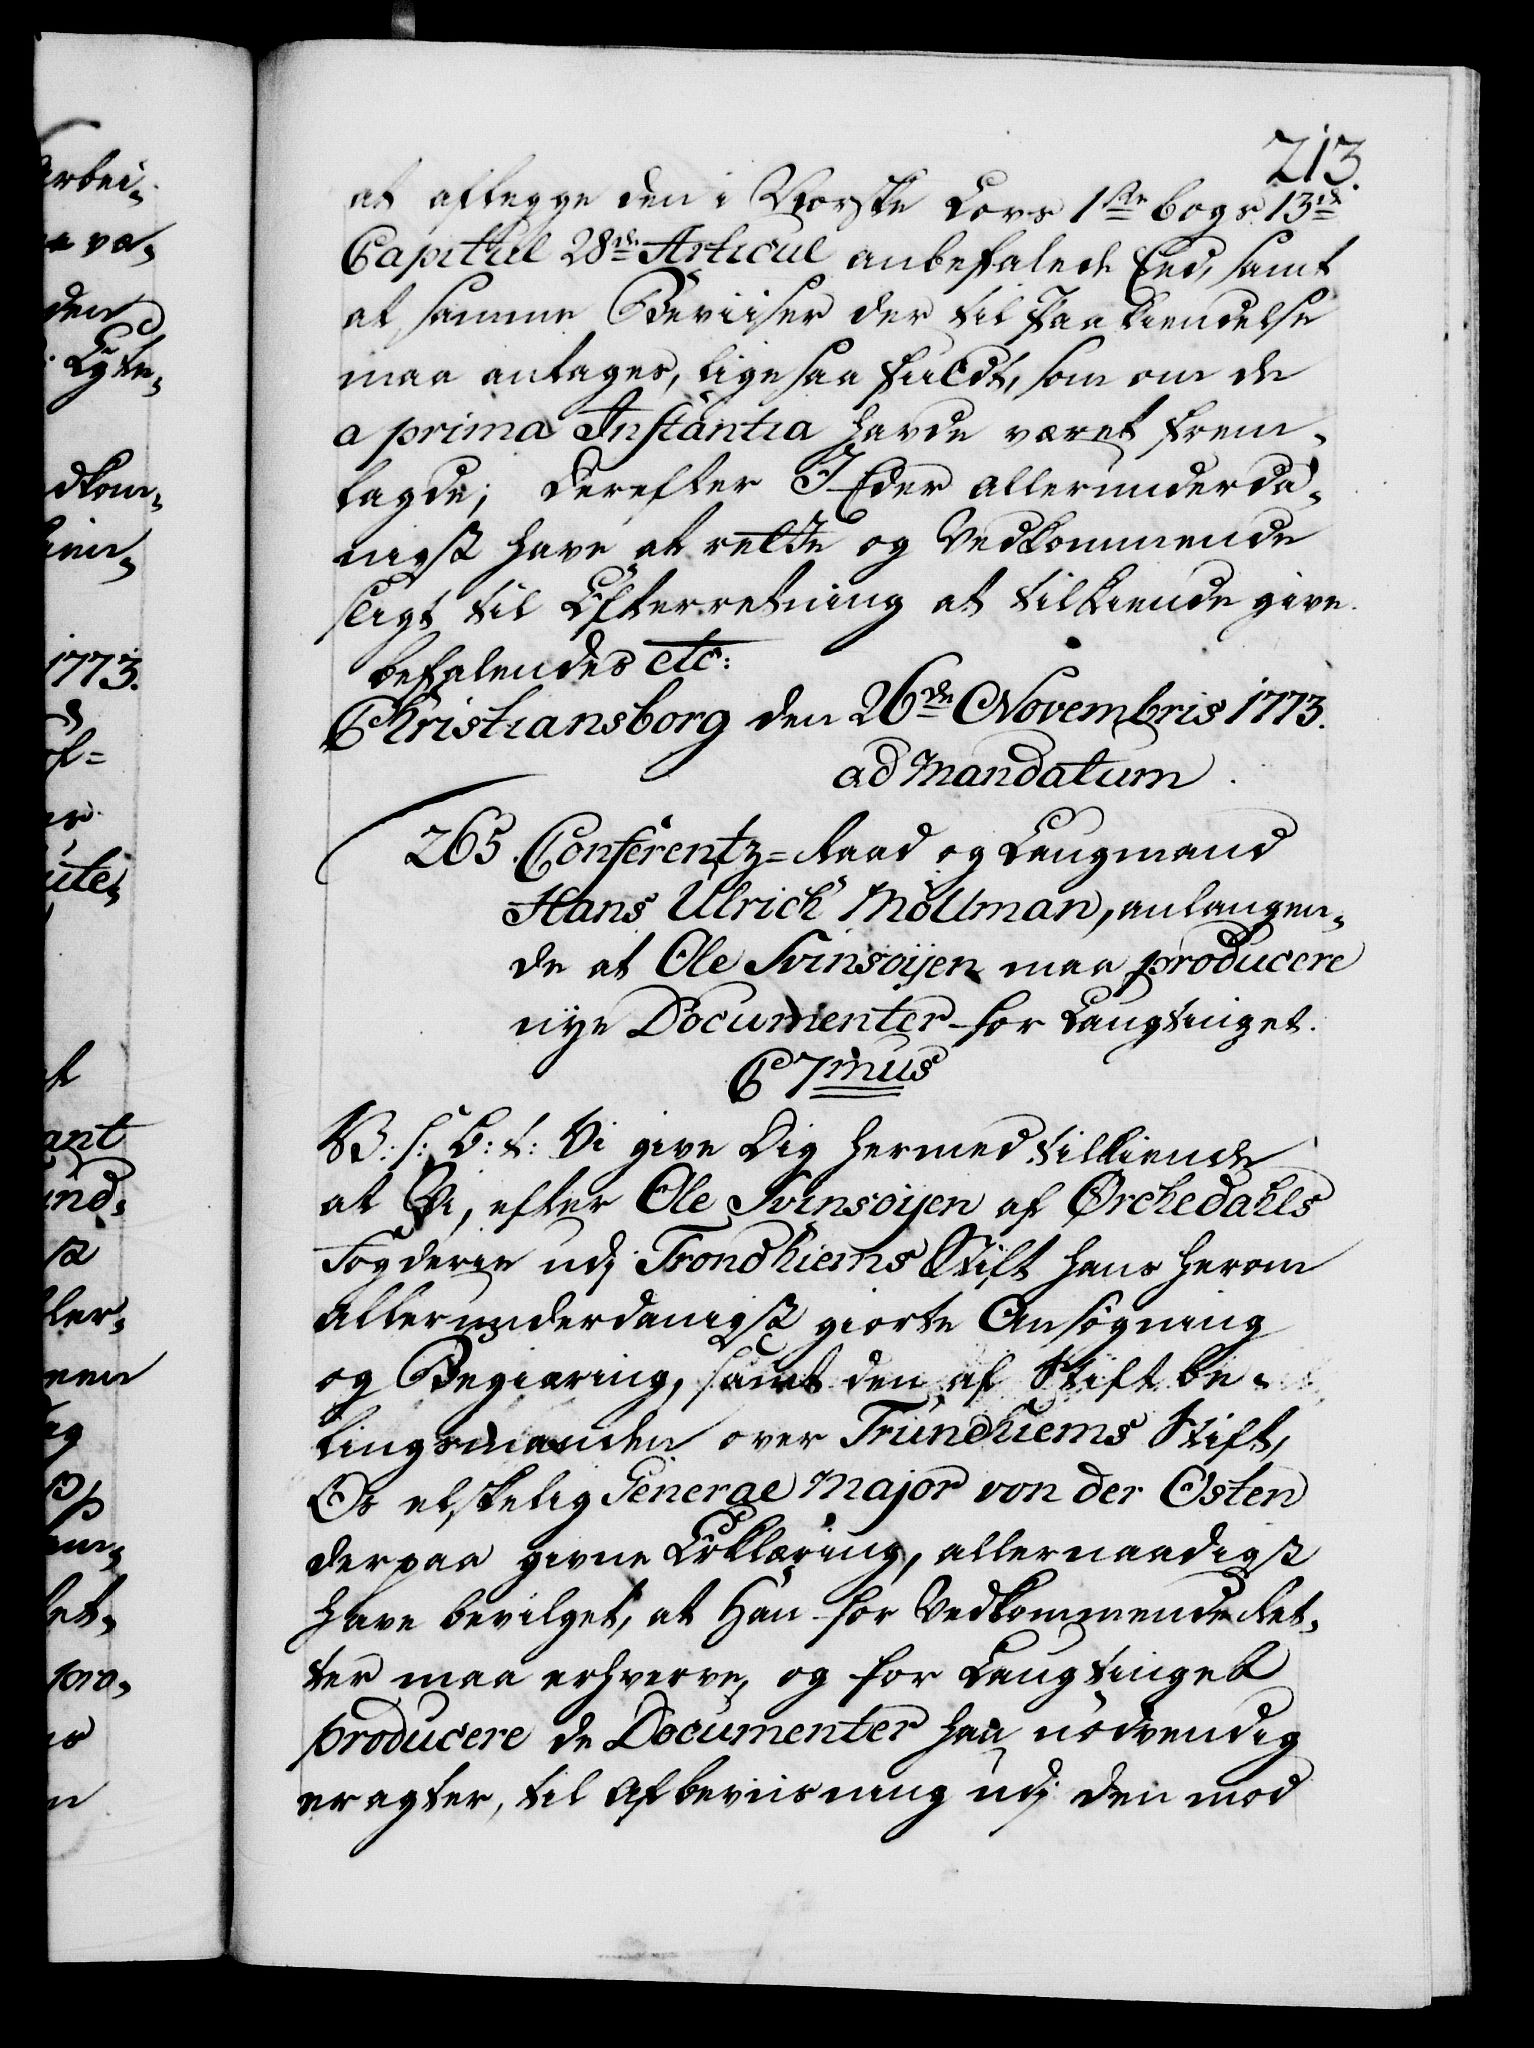 213.
at aflegge den i Norske Lovs 1ste bogs 13de
Capitul 28de Articul anbefalede Eed, samt
at samme Beviiser der til Paakiendelse
maa antages, lige saa fuldt, som om de
a prima Instantia havde været frem-
lagde; derefter I Eder allerunderda-
nigst have at rette og Vedkommende
sligt til Efterretning at tilkiende give.
befalendes etc:
Christiansborg den 26de Novembris 1773.
ad Mandatum.
265. Conferentz=Raad og Laugmand
Hans Ulrich Möllman, anlangen-
de at Ole Svinsöijen maa producere
nye Documenter for Laugtinget.
C 7mus
V: s: G: t: Vi give Dig hermed tilkiende
at Vi, efter Ole Svinsöijen af Ørchedahls
Fogderie udj Trondhiems Stift hans herom
allerunderdanigst giorte Ansögning
og Begiæring, samt den af Stift be-
lingsmanden over Trundhiems Stift,
Os elskelig General Major von der Osten
derpaa givne Erklæring, allernaadigst
have bevilget, at Han for Vedkommende Ret-
ter maa erhverve, og for Laugtinget
producere de Documenter han nödvendig
eragter, til Afbeviisning udj den mod
arbei-
den
1773.